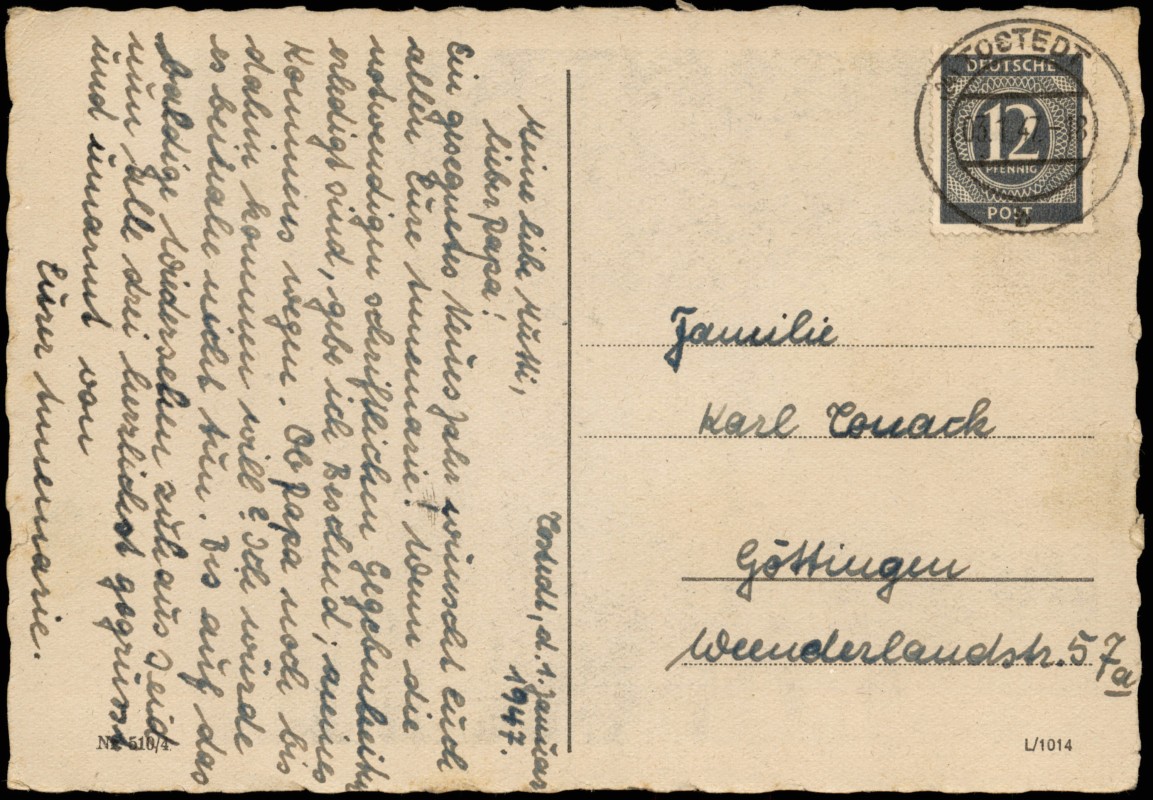 Tostedt, d. 1. Januar
1947.
Meine liebe Mutti,
lieber Papa!
Ein gesegnetes Neues Jahr wünscht Euch
allen Eure Annemarie! Wenn die
notwendigen schriftlichen Gegebenheiten
erledigt sind, gebe ich Bescheid, meines
Kommens wegen. Ob Papa noch bis
dahin kommen will? Ich würde
es beinahe nicht tun. Bis auf das
baldige Wiedersehen zuhaus seid
nun Alle drei herzlichst gegrüsst
und umarmt von
Eurer Annemarie.
Nr. 510/4
TOSTEDT
1.47
DEUTSCHE
12
PFENNIG
POST
b
Familie
Karl Conack
Göttingen
Weenderlandstr. 57a
L/1014